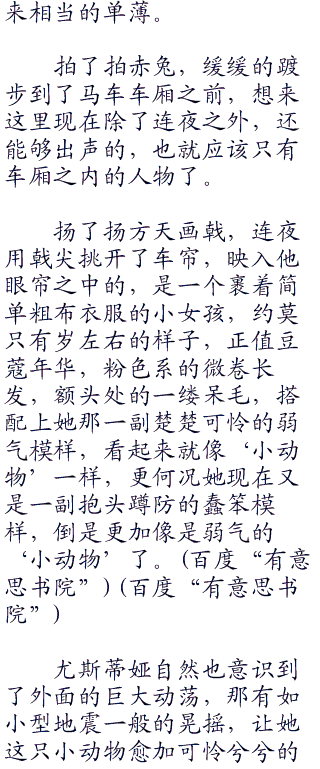 来相当的单薄。
拍了拍赤兔，缓缓的踱
步到了马车车厢之前，想来
这里现在除了连夜之外，还
能够出声的，也就应该只有
车厢之内的人物了。
扬了扬方天画戟，连夜
用戟尖挑开了车帘，映入他
眼帘之中的，是一个裹着简
单粗布衣服的小女孩，约莫
只有岁左右的样子，正值豆
蔻年华，粉色系的微卷长
发，额头处的一缕呆毛，搭
配上她那一副楚楚可怜的弱
气模样，看起来就像‘小动
物’一样，更何况她现在又
是一副抱头蹲防的蠢笨模
样，倒是更加像是弱气的
‘小动物’了。(百度“有意
思书院”)(百度“有意思书
院”)
尤斯蒂娅自然也意识到
了外面的巨大动荡，那有如
小型地震一般的晃摇，让她
这只小动物愈加可怜兮兮的